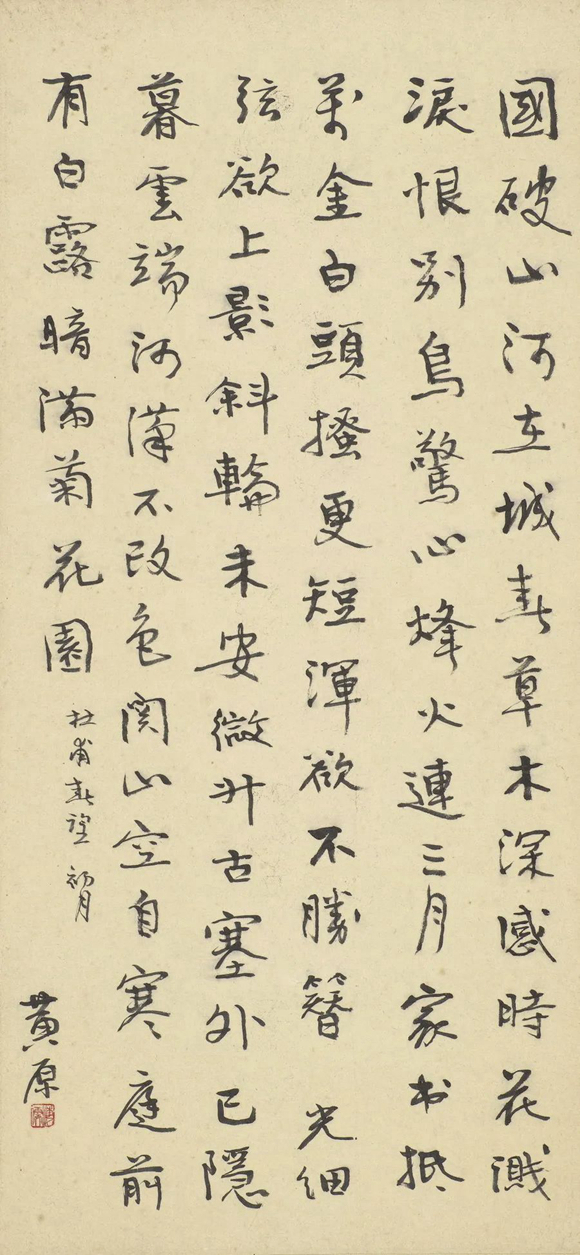 國破山河在城春草木深感時花濺
淚恨別鳥驚心烽火連三月家书抵
萬金白頭搔更短渾欲不勝簪 光細
弦欲上影斜輪未安微升古塞外已隱
暮雲端河漢不改色関山空自寒庭前
有白露暗滿菊花園
杜甫春望 初月
黃原